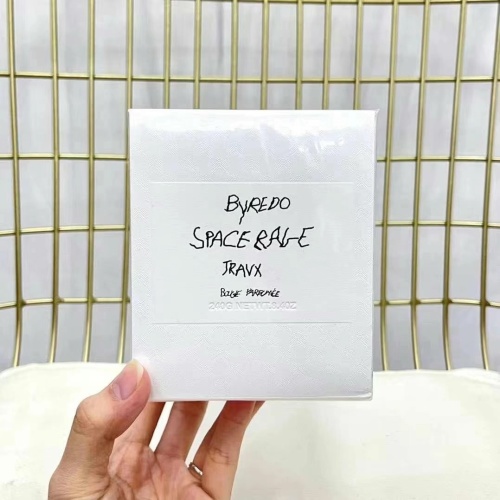 BYREDO
SPACE RAGE
TRAVX
BOUGIE PARFUMÉE
240G NET WT. 8.4OZ